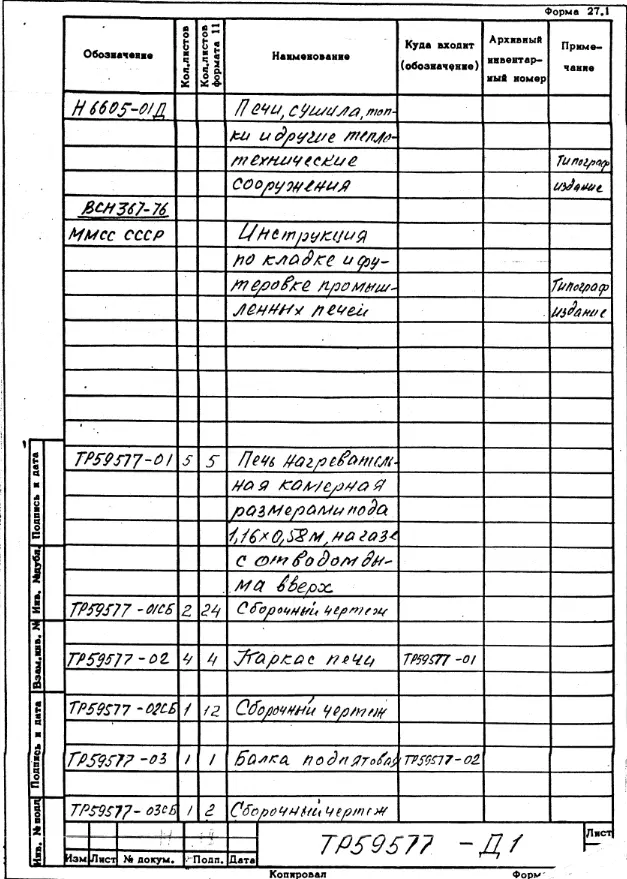 Форма 27.1
Обозначение Кол.листов Кол.листов формата 11 Наименование Куда входит (обозначение) Архивный инвентарный номер Примечание
Н6605-01Д Печи, сушила, топ-
ки и другие тепло-
технические Типограф
сооружения издание
ВСН367-76
ММСС СССР Инструкция
по кладке и фу-
теровке промыш- Типограф
ленных печей издание
ТР59577-01 5 5 Печь нагреватель-
ная камерная
размерами пода
1,16×0,58м, на газе
с отводом ды-
ма вверх
ТР59577-01СБ 2 24 Сборочный чертеж
ТР59577-02 4 4 Каркас печи ТР59577-01
ТР59577-02СБ 1 12 Сборочный чертеж
ТР59577-03 1 1 Балка подпятовая ТР59577-02
ТР59577-03СБ 1 2 Сборочный чертеж
Подпись и дата
Инв. №дубл.
Взам.инв. №
Подпись и дата
Инв. №подл
ТР59577 -Д1
Лист
Изм Лист № докум. Подп. Дата
Копировал Форм